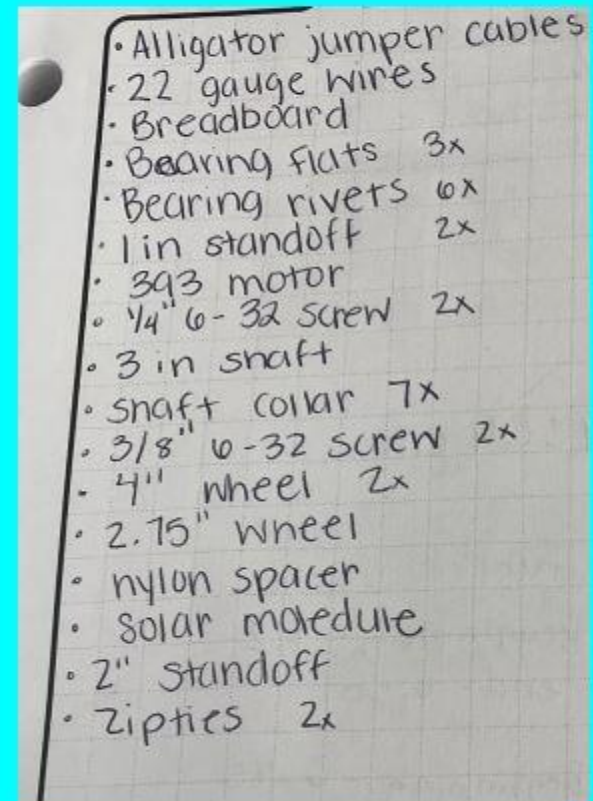 • Alligator jumper cables
• 22 gauge wires
• Breadboard
• Bearing flats 3x
• Bearing rivets 6x
• 1 in standoff 2x
• 393 motor
• 1/4" 6-32 screw 2x
• 3 in shaft
• shaft collar 7x
• 3/8" 6-32 screw 2x
• 4" wheel 2x
• 2.75" wheel
• nylon spacer
• solar
• 2" standoff
• zipties 2x